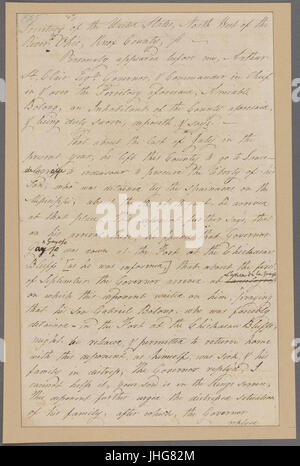 Territory of the United States, North West of the
River Ohio, Knox County, ss.
Personally appeared before me, Arthur
St. Clair Esqr. Governor, & Commander in Chief
in & over the Territory aforesaid, Amiable
Bolong, an Inhabitant of the County aforesaid,
& being duly sworn, deposeth & saith
That about the last of July, in the
present year, he left this County to go to
to endeavour to procure the liberty of his
Son, who was detained by the Spaniards on the
Mississippi; about the he arrived
at that place. This deponent further says, that
on his arrival there, he found that Governor
Gayoso was down at the Fort at the Chickasaw
Bluffs (as he was informed,) that about the first
of September, the Governor arrived at
on which this deponent waited on him, praying
that his Son Gabriel Bolong, who was forcibly
detained in the Fort at the Chickasaw Bluffs,
might be released, & permitted to return home
with this deponent, as himself was sick, & his
family in distress, the Governor replied I
cannot help it, your son is in the Kings Service,
this deponent further urged the distressed situation
of his family, after which, the Governor
replied
alamy
Image ID: JHG82M
www.alamy.com